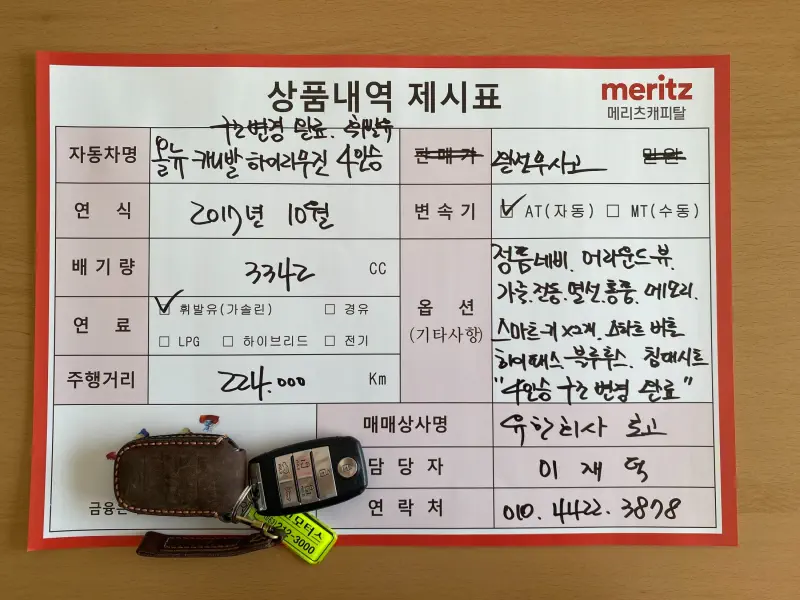 상품내역 제시표
meritz
메리츠캐피탈
구조변경 완료. 휘발유
자동차명 올뉴 카니발 하이리무진 4인승
판매가 완전무사고 만원
연 식 2017년 10월
변 속 기 ☑ AT(자동) ☐ MT(수동)
배 기 량 3342 CC
연 료 ☑ 휘발유(가솔린) ☐ 경유
☐ LPG ☐ 하이브리드 ☐ 전기
주행거리 224.000 Km
옵 션
(기타사항)
정품네비. 어라운드뷰.
가죽.전동.열선.통풍.메모리.
스마트키x2개. 스타트 버튼
하이패스. 블루투스. 침대시트
"4인승 구조변경 완료"
매매상사명 유한회사 최고
담 당 자 이 재 덕
연 락 처 010. 4422. 3878
금융
모터스
212-3000